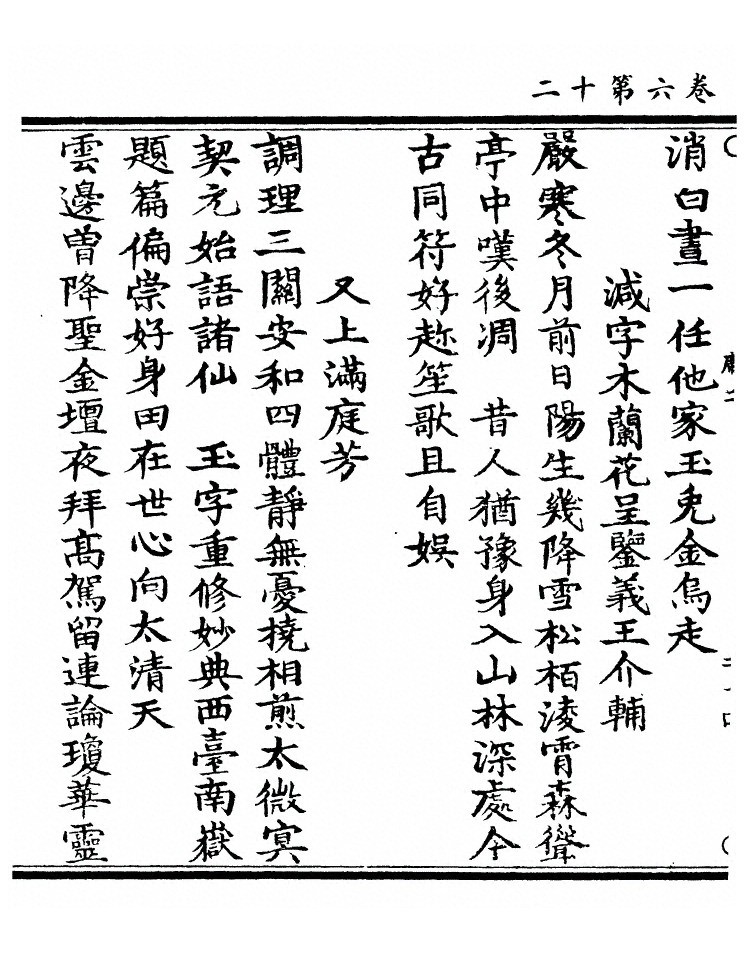 卷六第十二
消白晝一任他家玉兎金烏走
減字木蘭花呈鑒義王介輔
嚴寒冬月前日陽生幾降雪松栢淩霄森聳
亭中嘆後凋　昔人猶豫身入山林深處今
古同符好趂笙歌且自娱
又上滿庭芳
調理三關安和四體靜無憂撓相煎太微㝠
契元始語諸仙　玉字重修妙典西臺南嶽
題篇偏崇好身田在世心向太清天
雲邊曽降聖金壇夜拜髙駕留連論瓊華靈